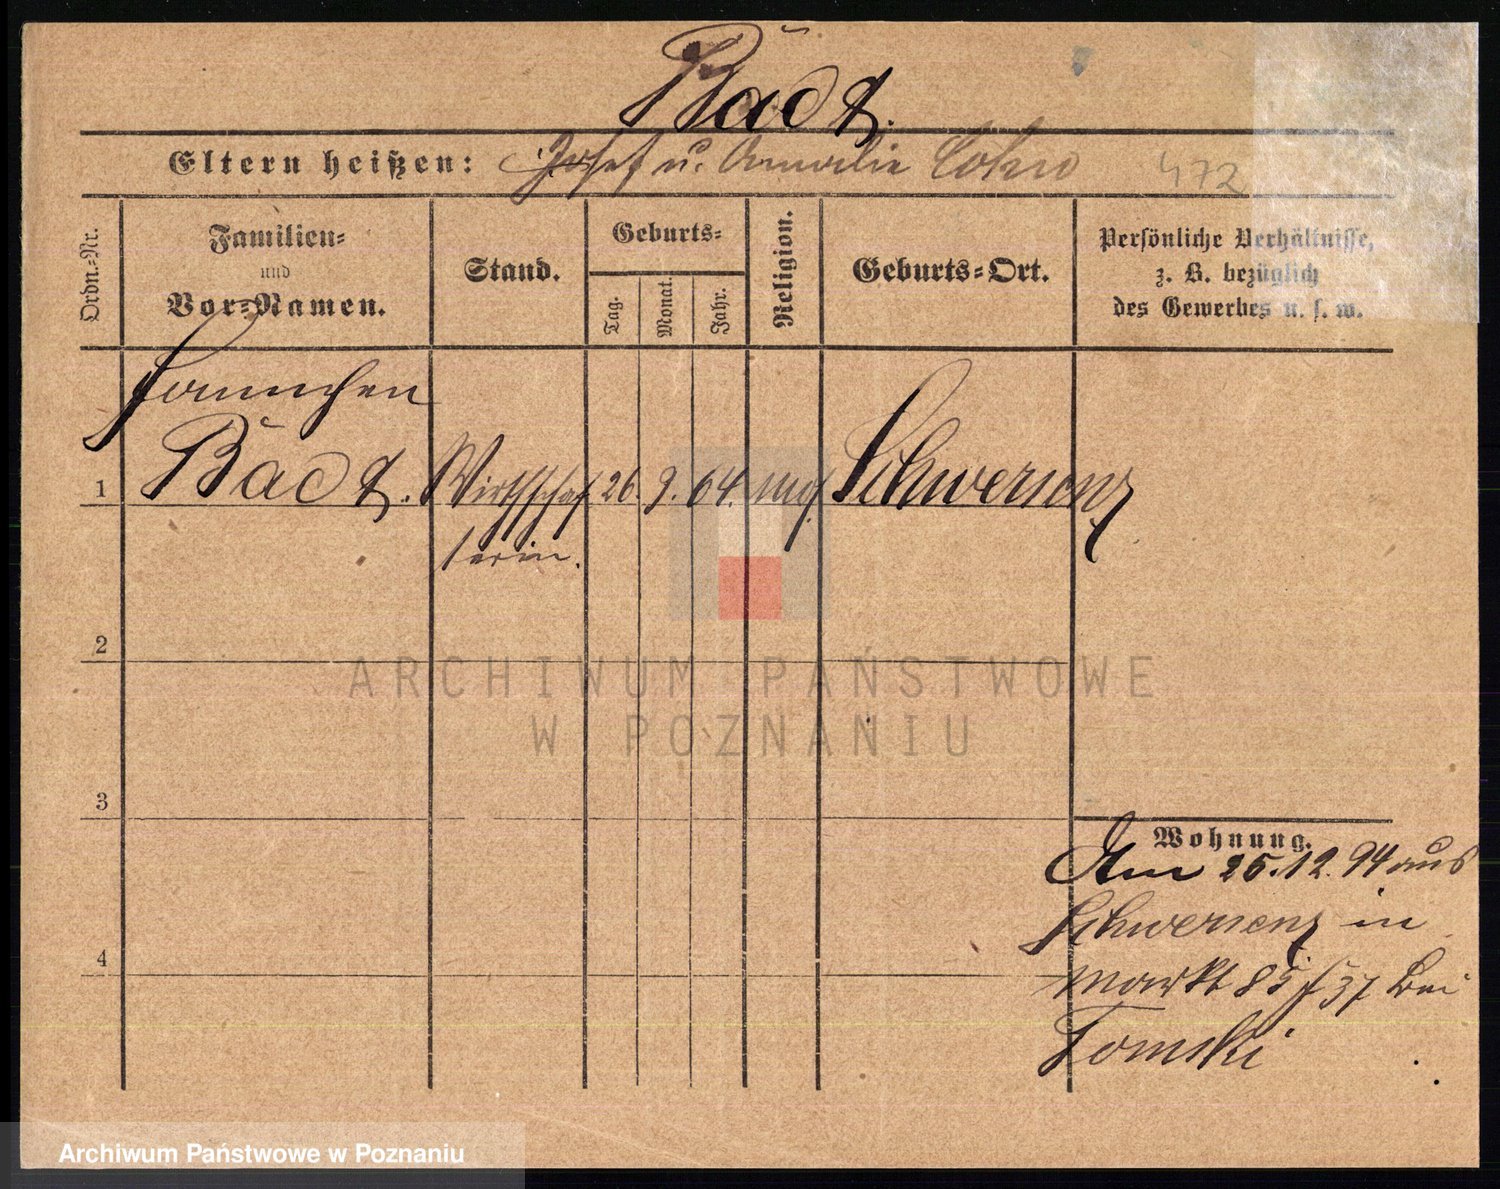 Bädt.
Eltern heißen: Josef u. Amalie Cohn 472
Ordn.-Nr.
Familien-
und
Vor-Namen.
Stand.
Geburts-
Tag.
Monat.
Jahr.
Religion.
Geburts-Ort.
Persönliche Verhältnisse,
z. B. bezüglich
des Gewerbes u. s. w.
Hannchen
1 Bädt. Wirthschaf 26. 9. 64. mos. Schwersenz
terin.
2
3
4
Wohnung.
Am 25.12.94 aus
Schwersenz in
Markt 85/37 bei
Tomski
ARCHIWUM PAŃSTWOWE
W POZNANIU
Archiwum Państwowe w Poznaniu